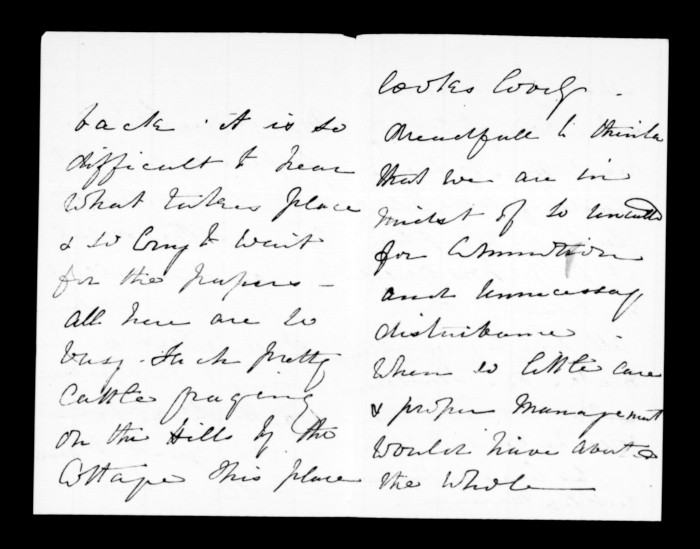 back . it is so
difficult to hear
What takes place
& so long to wait
for the papers –
all here are so
busy . Such pretty
Cattle grazing
on the hills by the
Cottage This place
looks lovely .
dreadfull to think
that we are in
midst of so
for Commotion
and unnecessay
disturbance .
When so little care
& proper Management
Would have
the Whole